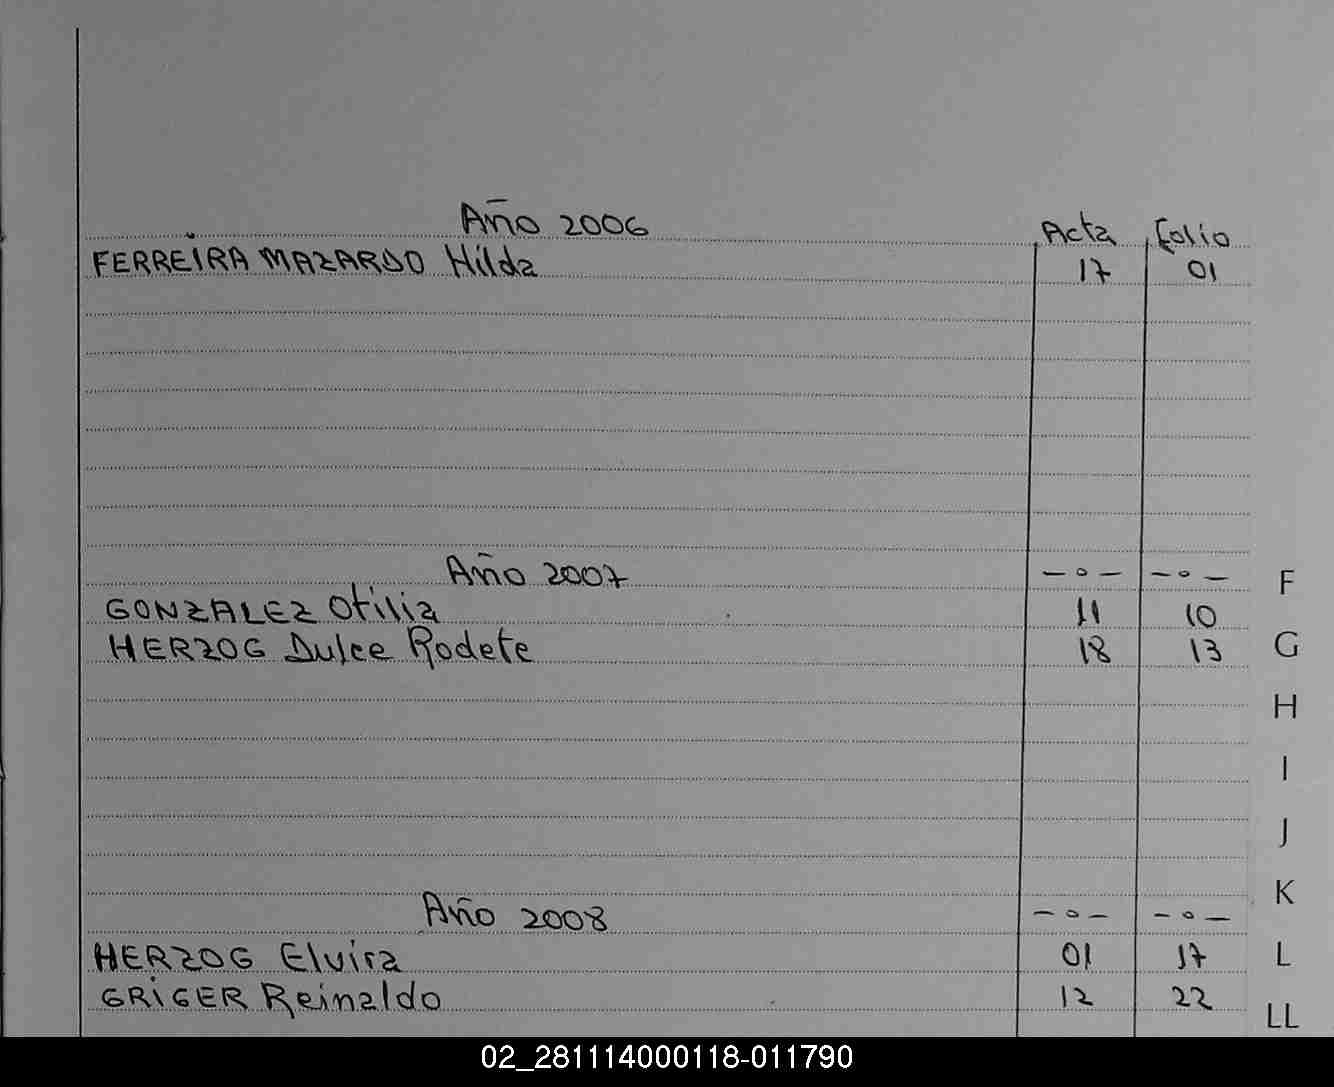 Año 2006 Acta Folio
FERREIRA MAZARDO Hilda 17 01
Año 2007 -o- -o-
GONZALEZ Otilia 11 10
HERZOG Dulce Rodete 18 13
Año 2008 -o- -o-
HERZOG Elvira 01 17
GRIGER Reinaldo 12 22
F
G
H
I
J
K
L
LL
02_281114000118-011790